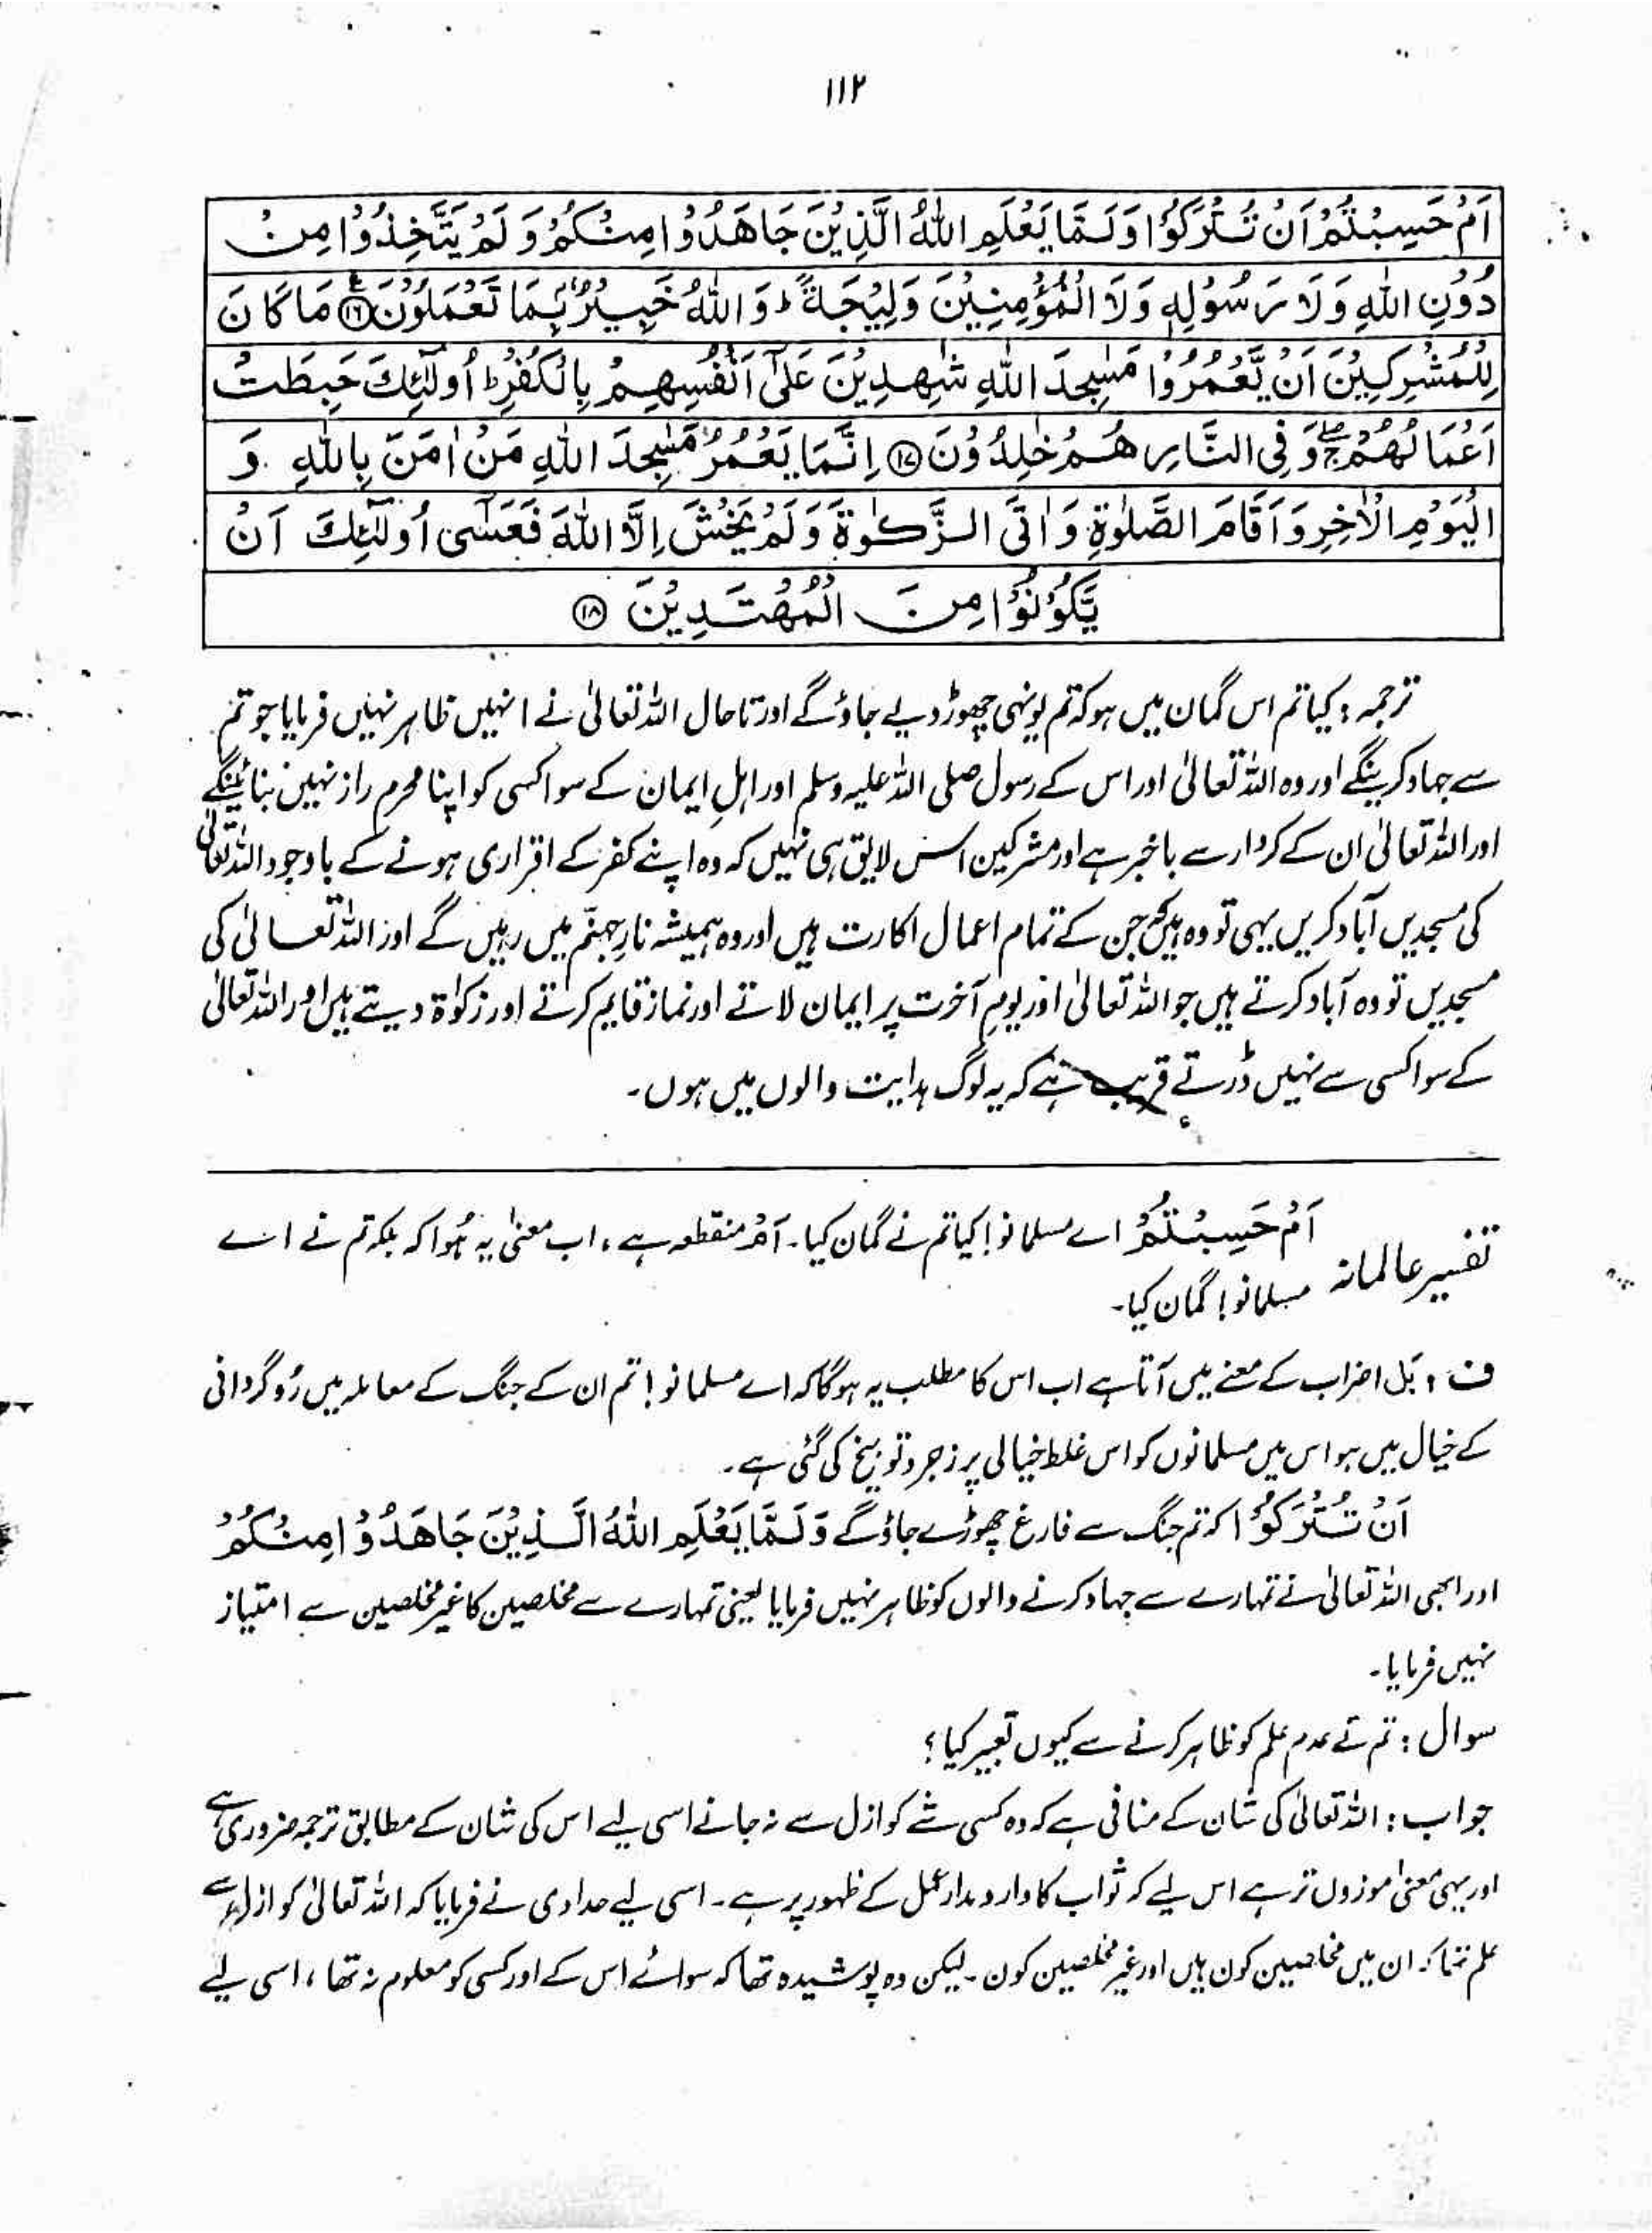 ۱۱۲
اَمْ حَسِبْتُمْ اَنْ تُتْرَكُوْا وَلَمَّا يَعْلَمِ اللّٰهُ الَّذِيْنَ جَاهَدُوْا مِنْكُمْ وَلَمْ يَتَّخِذُوْا مِنْ
دُوْنِ اللّٰهِ وَلَا رَسُوْلِهٖ وَلَا الْمُؤْمِنِيْنَ وَلِيْجَةً ؕ وَاللّٰهُ خَبِيْرٌۢ بِمَا تَعْمَلُوْنَ ۝۱۶ مَا كَانَ
لِلْمُشْرِكِيْنَ اَنْ يَّعْمُرُوْا مَسٰجِدَ اللّٰهِ شٰهِدِيْنَ عَلٰۤى اَنْفُسِهِمْ بِالْكُفْرِ ؕ اُولٰٓئِكَ حَبِطَتْ
اَعْمَالُهُمْ ۖۚ وَ فِی النَّارِ هُمْ خٰلِدُوْنَ ۝۱۷ اِنَّمَا يَعْمُرُ مَسٰجِدَ اللّٰهِ مَنْ اٰمَنَ بِاللّٰهِ وَ
الْيَوْمِ الْاٰخِرِ وَ اَقَامَ الصَّلٰوةَ وَ اٰتَى الزَّكٰوةَ وَ لَمْ يَخْشَ اِلَّا اللّٰهَ فَعَسٰۤى اُولٰٓئِكَ اَنْ
يَّكُوْنُوْا مِنَ الْمُهْتَدِيْنَ ۝۱۸
ترجمہ : کیا تم اس گمان میں ہو کہ تم یونہی چھوڑ دیے جاؤ گے اور تاحال اللہ تعالیٰ نے انہیں ظاہر نہیں فرمایا جو تم
سے جہاد کرینگے اور وہ اللہ تعالیٰ اور اس کے رسول صلی اللہ علیہ وسلم اور اہلِ ایمان کے سوا کسی کو اپنا محرم راز نہیں بنائینگے
اور اللہ تعالیٰ ان کے کردار سے باخبر ہے اور مشرکین اس لایق ہی نہیں کہ وہ اپنے کفر کے اقراری ہونے کے باوجود اللہ تعالیٰ
کی مسجدیں آباد کریں یہی تو وہ ہیں جن کے تمام اعمال اکارت ہیں اور وہ ہمیشہ نارِ جہنّم میں رہیں گے اور اللہ تعالیٰ کی
مسجدیں تو وہ آباد کرتے ہیں جو اللہ تعالیٰ اور یومِ آخرت پر ایمان لاتے اور نماز قایم کرتے اور زکوٰۃ دیتے ہیں اور اللہ تعالیٰ
کے سوا کسی سے نہیں ڈرتے قریب ہے کہ یہ لوگ ہدایت والوں میں ہوں۔
تفسیر عالمانہ اَمْ حَسِبْتُمْ اے مسلمانو! کیا تم نے گمان کیا۔ اَمْ منقطعہ ہے ، اب معنیٰ یہ ہُوا کہ بلکہ تم نے اے
مسلمانو! گمان کیا۔
ف : بَل اضراب کے معنے میں آتا ہے اب اس کا مطلب یہ ہو گا کہ اے مسلمانو! تم ان کے جنگ کے معاملہ میں رُوگردانی
کے خیال میں ہو اس میں مسلمانوں کو اس غلط خیالی پر زجر و توبیخ کی گئی ہے۔
اَنْ تُتْرَكُوْا کہ تم جنگ سے فارغ چھوڑے جاؤ گے وَلَمَّا يَعْلَمِ اللّٰهُ الَّذِيْنَ جَاهَدُوْا مِنْكُمْ
اور ابھی اللہ تعالیٰ نے تمہارے سے جہاد کرنے والوں کو ظاہر نہیں فرمایا یعنی تمہارے سے مخلصین کا غیر مخلصین سے امتیاز
نہیں فرمایا۔
سوال : تم نے عدم علم کو ظاہر کرنے سے کیوں تعبیر کیا ؟
جواب : اللہ تعالیٰ کی شان کے منافی ہے کہ وہ کسی شے کو ازل سے نہ جانے اسی لیے اس کی شان کے مطابق ترجمہ ضروری ہے
اور یہی معنیٰ موزوں تر ہے اس لیے کہ ثواب کا دار و مدار عمل کے ظہور پر ہے۔ اسی لیے حدادی نے فرمایا کہ اللہ تعالیٰ کو ازل سے
علم تھا کہ ان میں مخلصین کون ہیں اور غیر مخلصین کون ۔ لیکن وہ پوشیدہ تھا کہ سوائے اس کے اور کسی کو معلوم نہ تھا ، اسی لیے